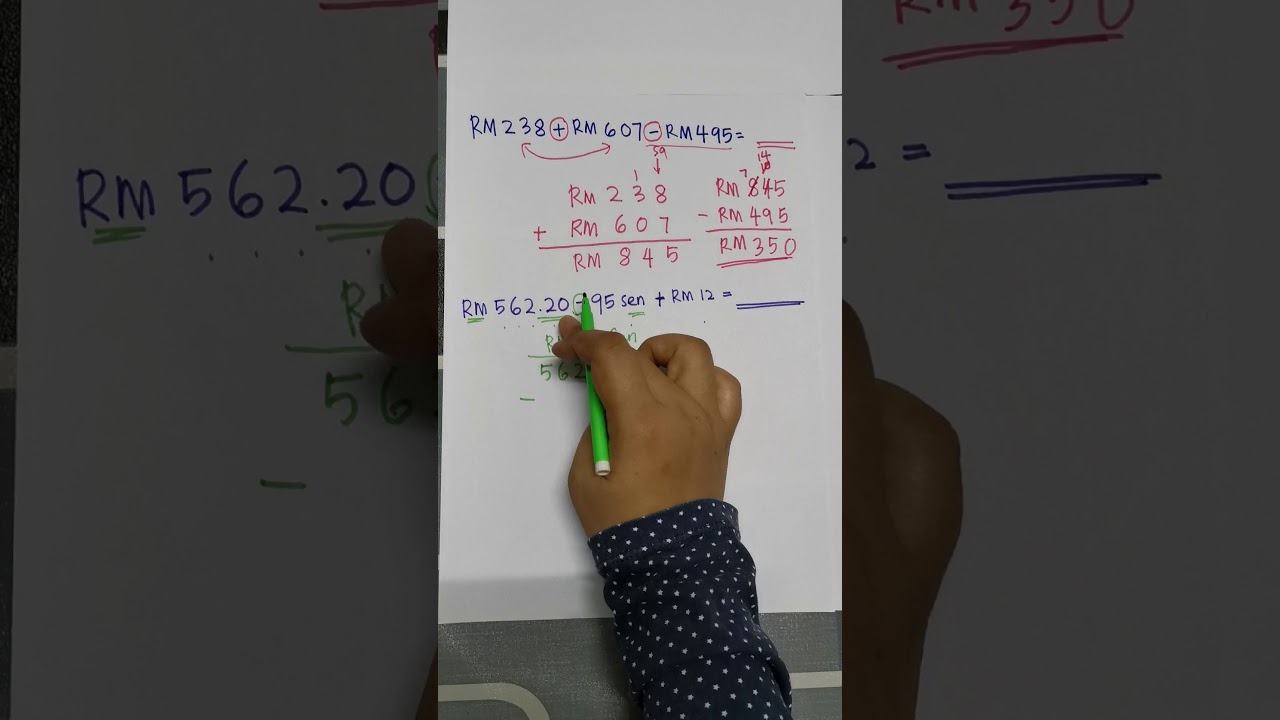 RM 238 + RM 607 - RM 495 = ____
59
1
RM 2 3 8
+ RM 6 0 7
RM 8 4 5
14
7 10
RM 845
- RM 495
RM 350
RM 562.20 - 95 sen + RM 12 = ____
562
-